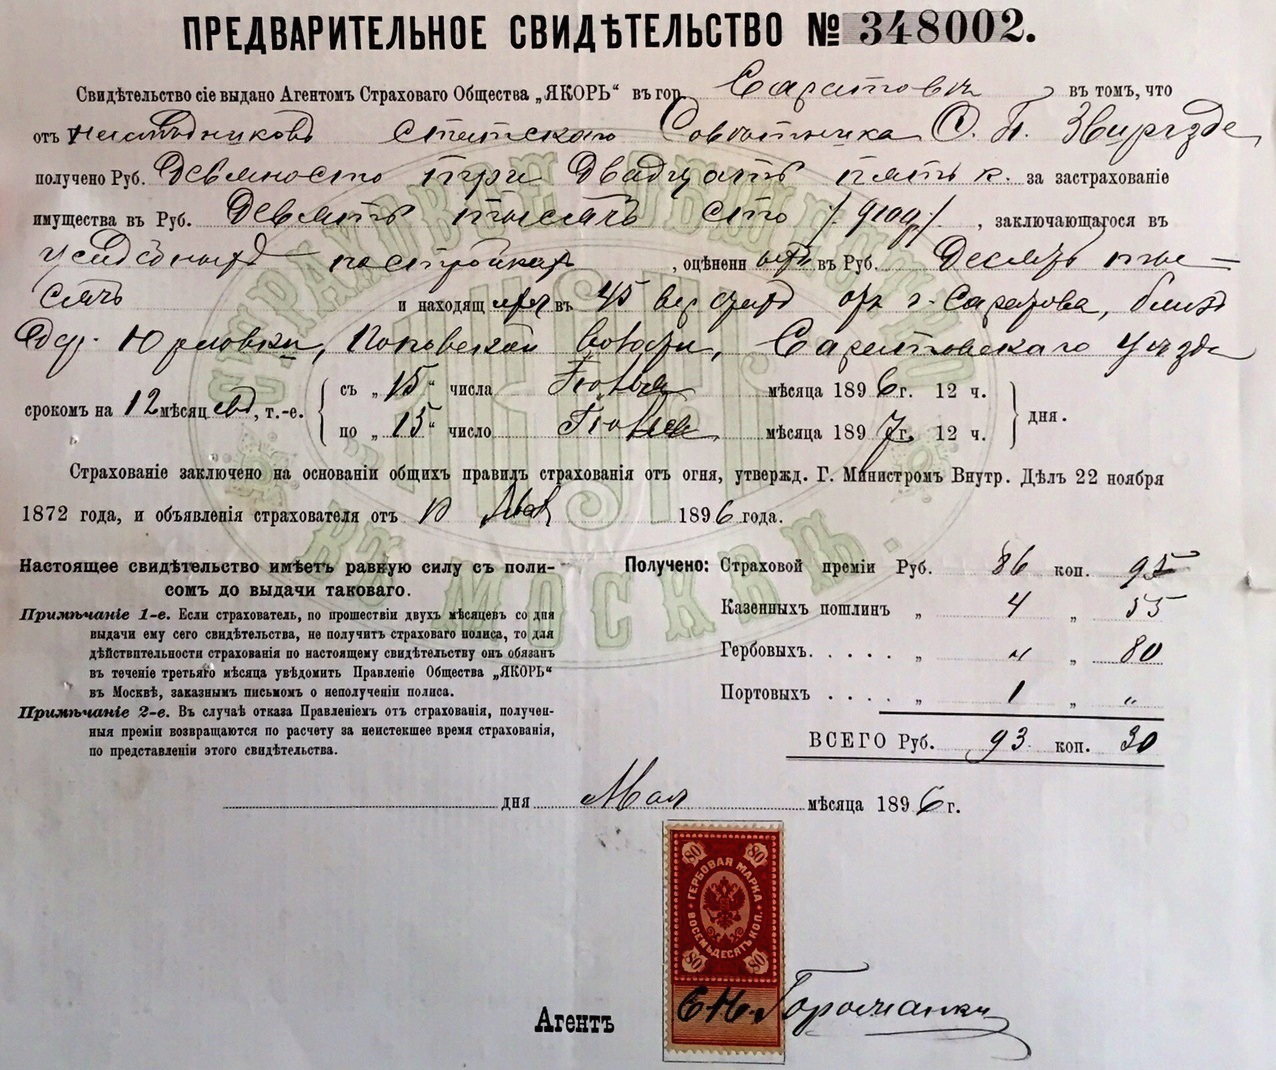 ПРЕДВАРИТЕЛЬНОЕ СВИДѢТЕЛЬСТВО № 348002.
Свидѣтельство сіе выдано Агентомъ Страховаго Общества „ЯКОРЬ“ въ гор. Саратовѣ въ томъ, что
отъ наслѣдниковъ статскаго Совѣтника С. П. Звирзде
получено Руб. Девяносто три двадцать пять к. за застрахованіе
имущества въ Руб. Девять тысячъ сто , заключающагося въ
усадебныхъ постройкахъ , оцѣненн въ Руб. Десять ты-
сячъ и находящ въ 45 верстахъ отъ г. Саратова, близъ
дер. Юрловки, Поповской волости, Саратовскаго Уѣзда
срокомъ на 12 мѣсяцевъ, т.-е.
съ „ 15 “ числа Іюня мѣсяца 1896 г. 12 ч.
по „ 15 “ число Іюня мѣсяца 1897 г. 12 ч. дня.
Страхованіе заключено на основаніи общихъ правилъ страхованія отъ огня, утвержд. Г. Министромъ Внутр. Дѣлъ 22 ноября
1872 года, и объявленія страхователя отъ Мая 1896 года.
Настоящее свидѣтельство имѣетъ равную силу съ поли-
сомъ до выдачи таковаго.
Примѣчаніе 1-е. Если страхователь, по прошествіи двухъ мѣсяцевъ со дня
выдачи ему сего свидѣтельства, не получитъ страховаго полиса, то для
дѣйствительности страхованія по настоящему свидѣтельству онъ обязанъ
въ теченіе третьяго мѣсяца увѣдомить Правленіе Общества „ЯКОРЬ“
въ Москвѣ, заказнымъ письмомъ о неполученіи полиса.
Примѣчаніе 2-е. Въ случаѣ отказа Правленіемъ отъ страхованія, получен-
ныя преміи возвращаются по расчету за неистекшее время страхованія,
по представленіи этого свидѣтельства.
Получено: Страховой преміи Руб. 86 коп. 95
Казенныхъ пошлинъ „ 4 „ 55
Гербовыхъ. . . . . „ „ „ 80
Портовыхъ . . . . „ 1 „ „
ВСЕГО Руб. 93 коп. 30
дня Мая мѣсяца 1896 г.
80 80
ГЕРБОВАЯ МАРКА
ВОСЕМЬДЕСЯТЪ КОП.
80 80
Агентъ
СТРАХОВОЕ ОБЩЕСТВО
„ЯКОРЬ“
ВЪ МОСКВѢ.